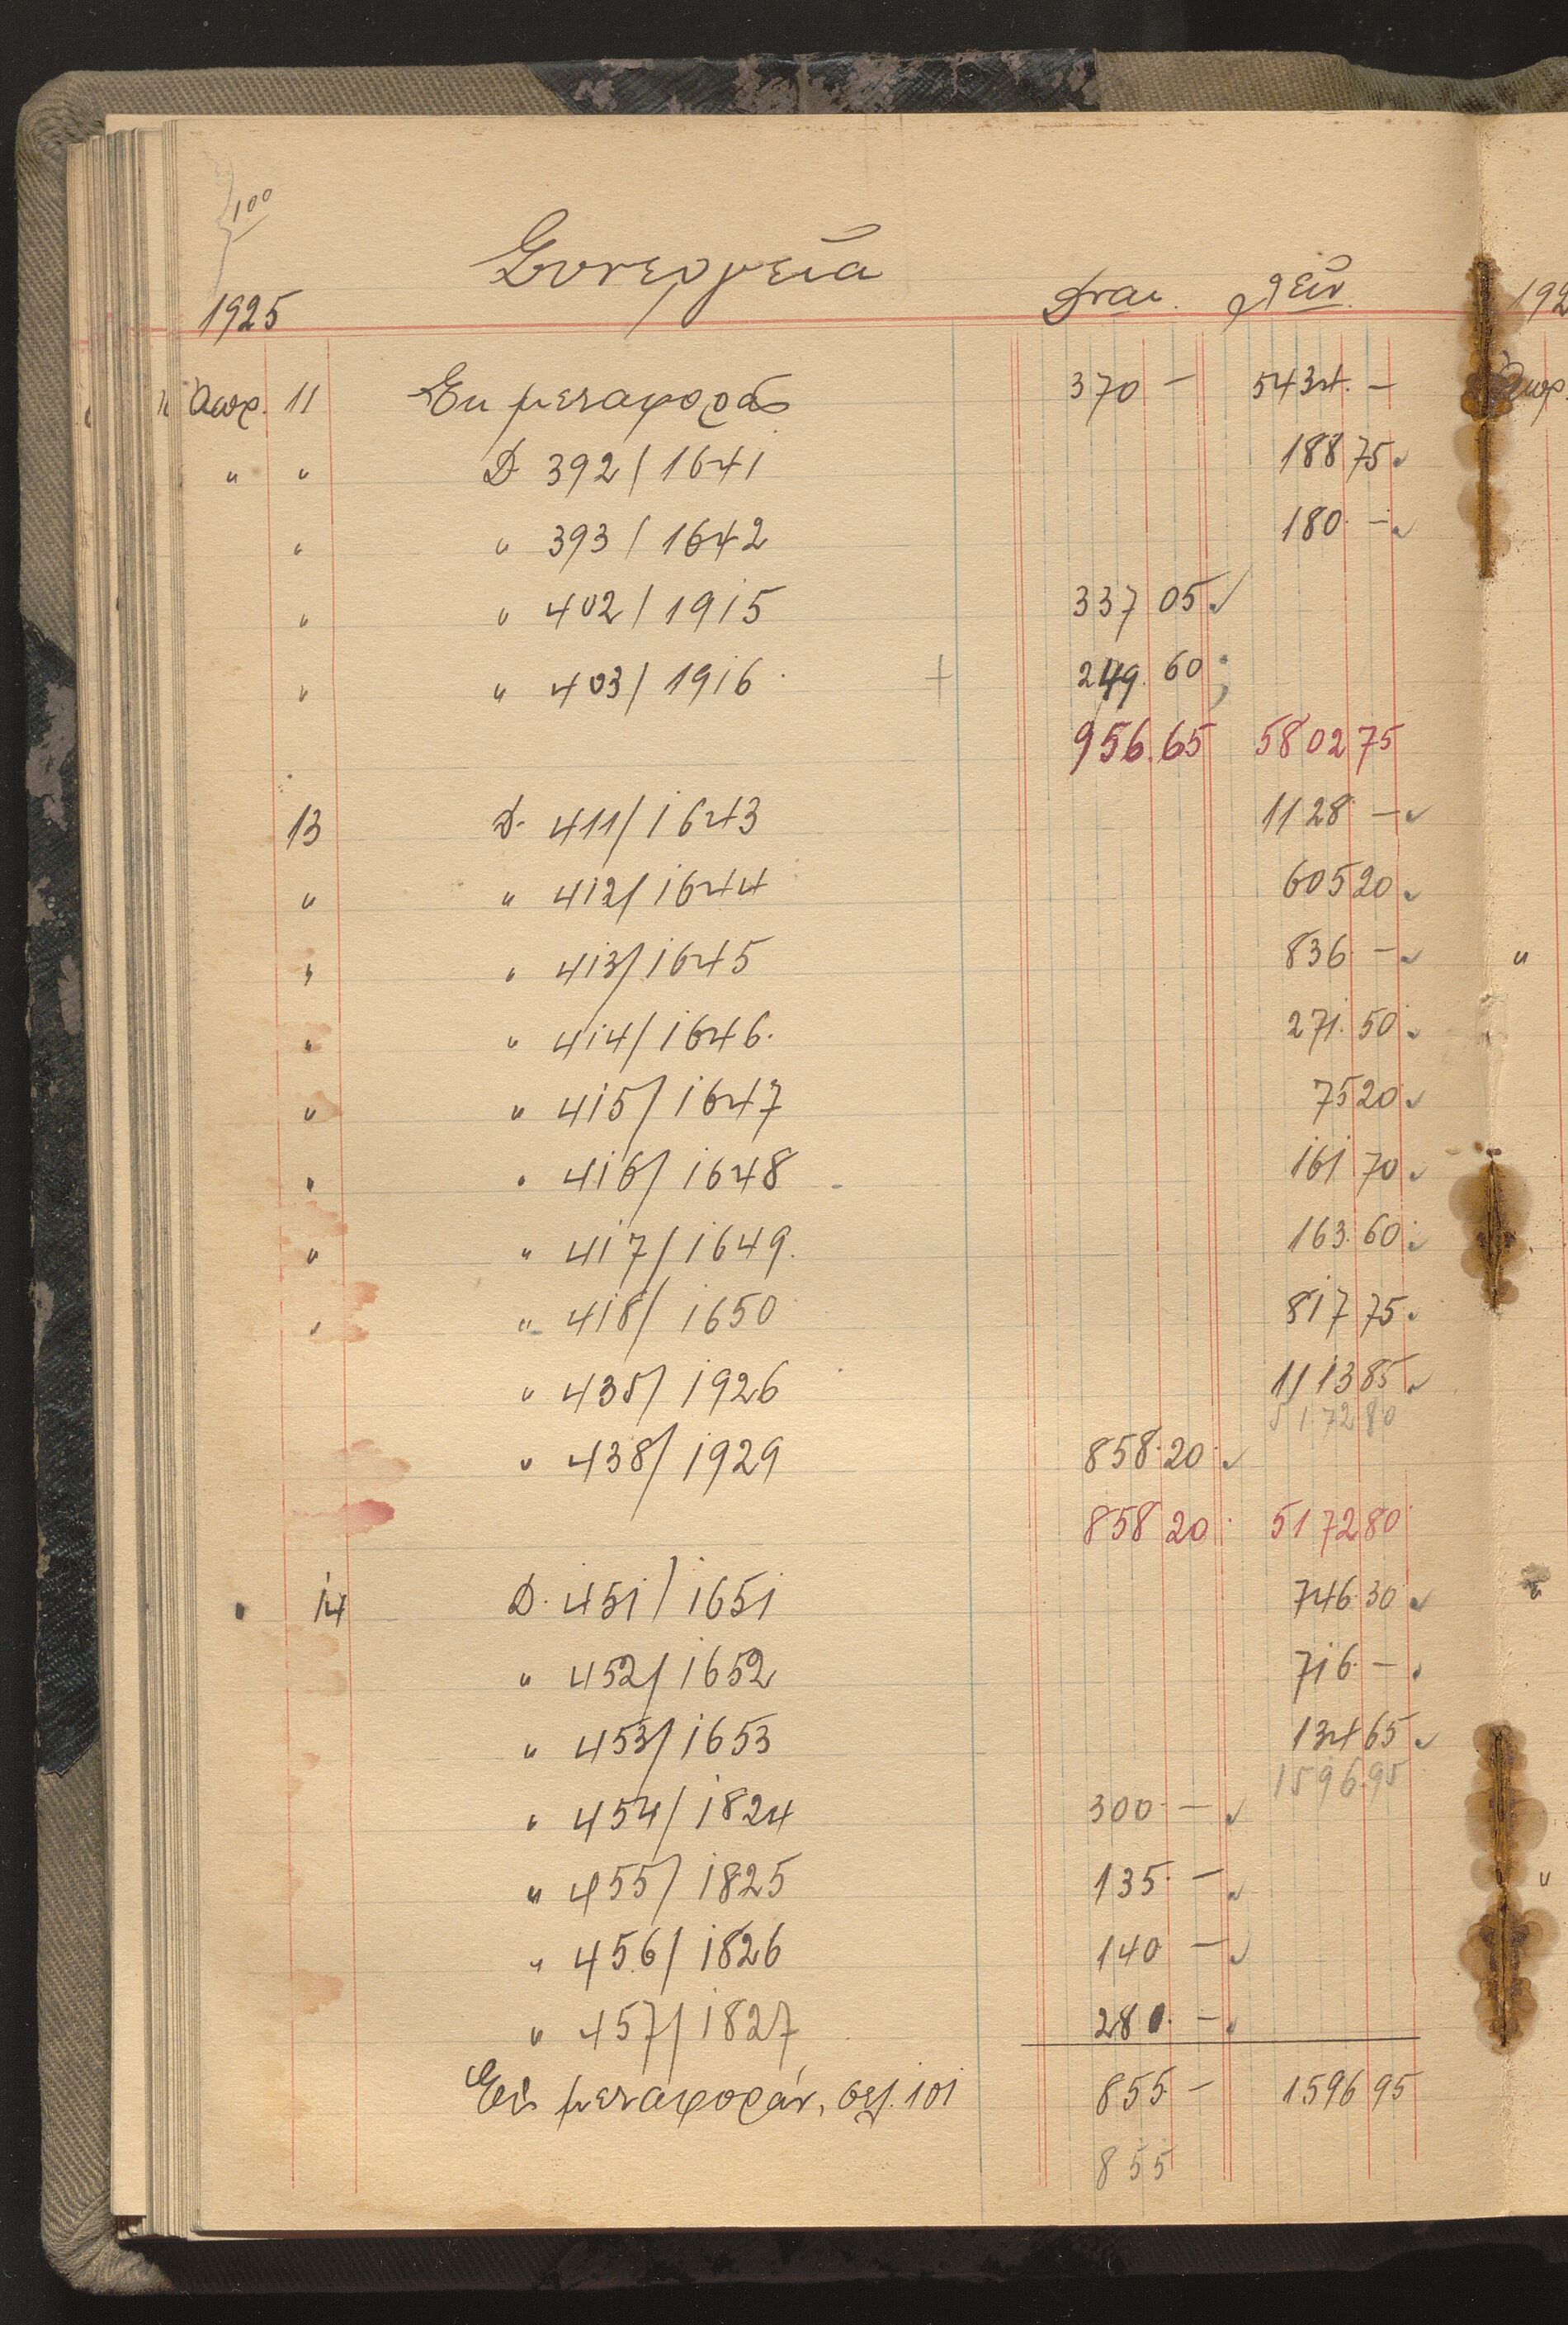 100
Συνεργεῖα
1925
192
Απρ. 11 Εκ μεταφορᾶς 370 — 5434. —
" " D 392/1641 188 75
" " 393/1642 180 —
" " 402/1915 337 05
" " 403/1916 + 249.60
956.65 5802 75
13 D. 411/1643 1128 —
" " 412/1644 605 20
" " 413/1645 836 —
" " 414/1646. 271.50
" " 415/1647 75 20
" " 416/1648 161 70
" " 417/1649. 163.60
" " 418/1650 817 75
" 435/1926 1113 85
5172 80
" 438/1929 858.20
858 20 5172 80
14 D. 451/1651 746.30
" 452/1652 716. —
" 453/1653 134 65
1596.95
" 454/1824 300 —
" 455/1825 135. —
" 456/1826 140 —
" 457/1827 280. —
Εἰς μεταφοράν, σελ. 101 855 — 1596 95
855